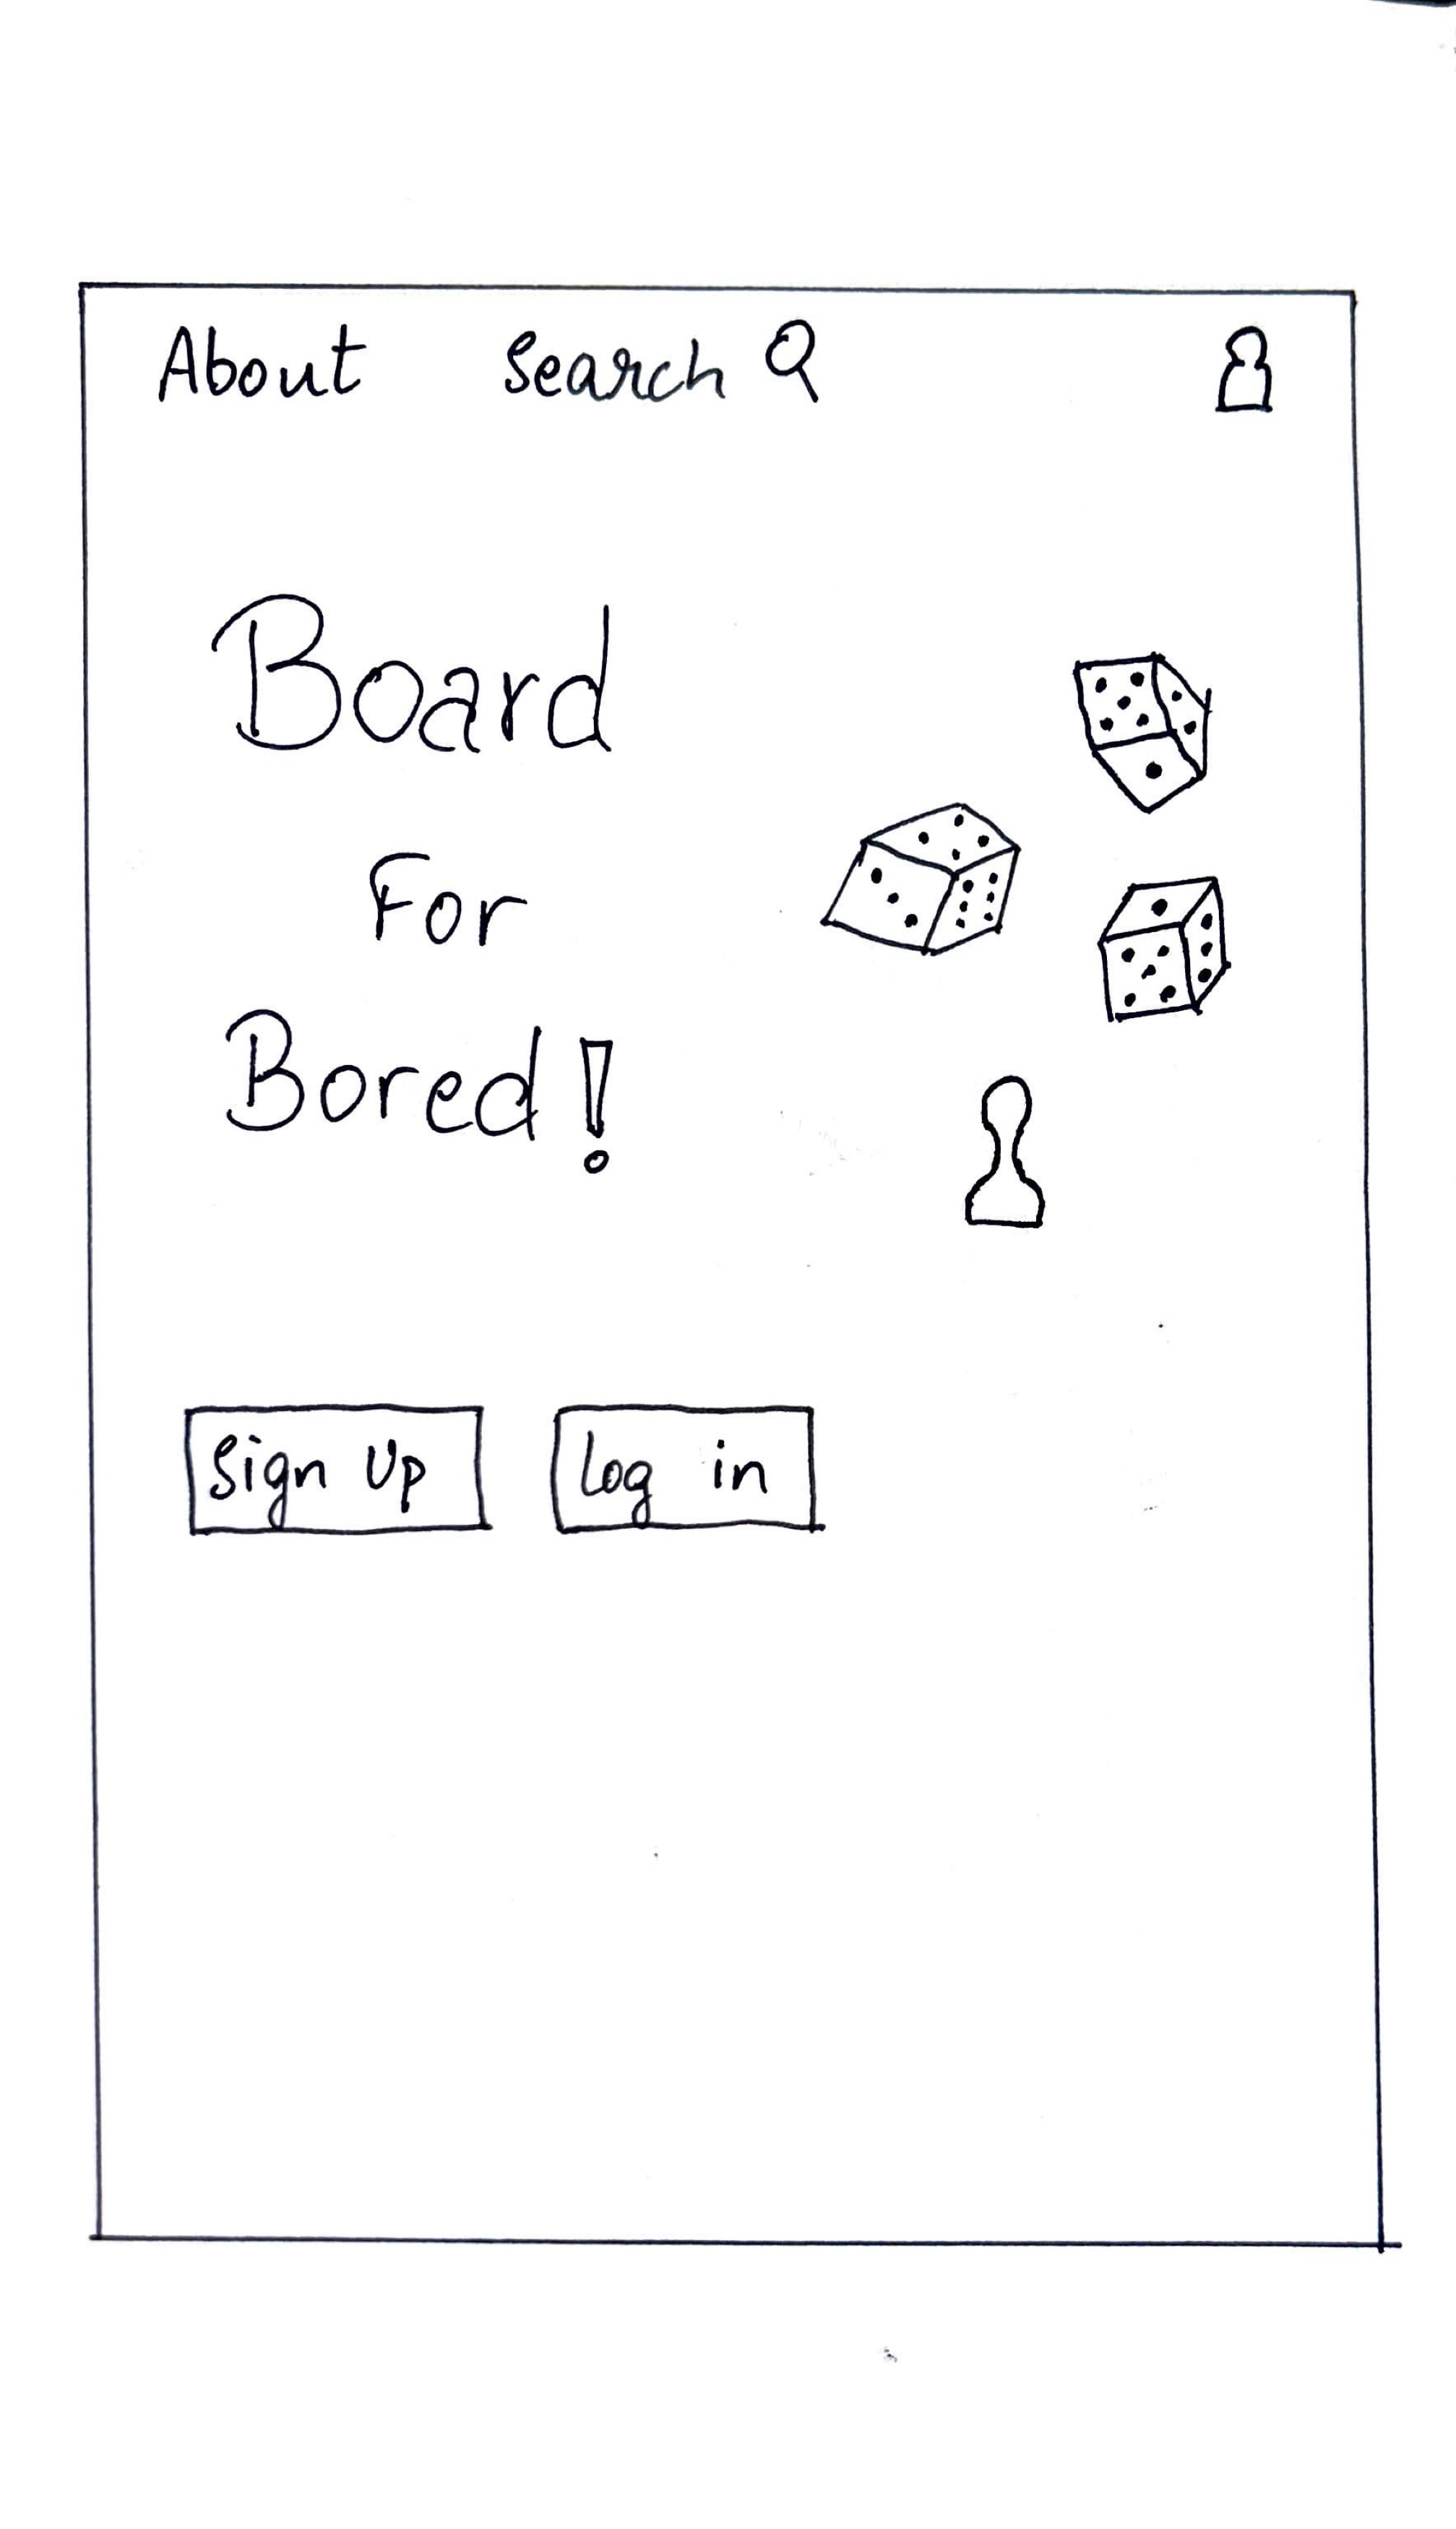 About Search
Board
For
Bored!
Sign Up Log in